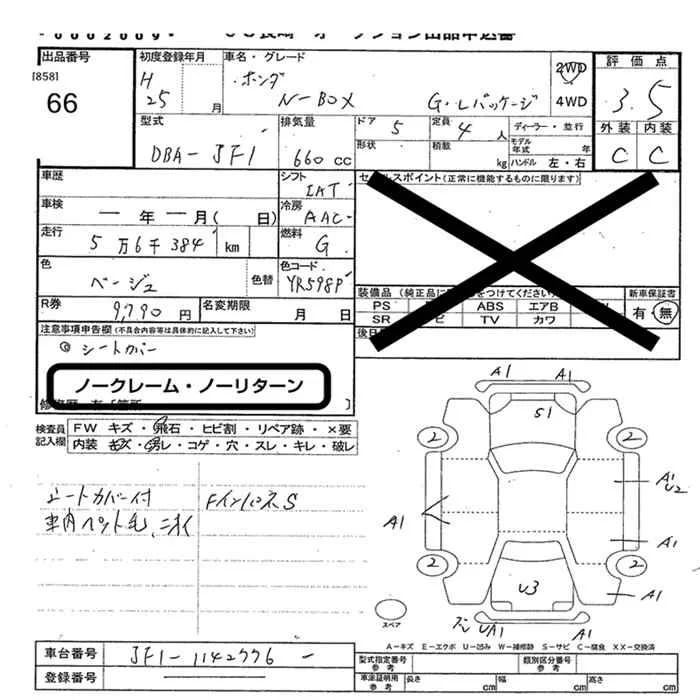 0002009
出品番号
[858]
66
初度登録年月
H 25 月
車名・グレード
ホンダ
N-BOX G・Lパッケージ
2WD
4WD
評価点
3.5
外装 内装
C C
型式
DBA-JF1
排気量
660 cc
ドア 5
定員 4 人
ディーラー・並行
形状
積載 kg
モデル年式 年
ハンドル 左・右
車歴
シフト
IAT
セールスポイント(正常に機能するものに限ります)
車検
ー年ー月( 日)
冷房
AAC
走行
5万6千384 km
燃料
G
色
ベージュ
色替
色コード
YR598P
装備品(純正品に をつけてください)
新車保証書
有・無
PS ABS エアB
SR TV カワ
R券
9,790円
名変期限
月 日
後日
注意事項申告欄(不具合内容等は具体的に記入して下さい)
◎シートカバー
ノークレーム・ノーリターン
検査員記入欄
FW キズ・飛石・ヒビ割・リペア跡・×要
内装 キズ・汚レ・コゲ・穴・スレ・キレ・破レ
シートカバー付
車内ペット毛、ニオイ
FインパネS
A1 A1
S1
2 2
A1
U2
A1
A1
2 2
U3
A1
UA1
スペア
A-キズ E-エクボ U-凹み W-補修跡 S-サビ C-腐食 XX-交換済
車台番号
JF1-1142776
登録番号
型式指定番号 参考
類別区分番号 参考
車庫証明用 参考
長さ cm
幅 cm
高さ cm